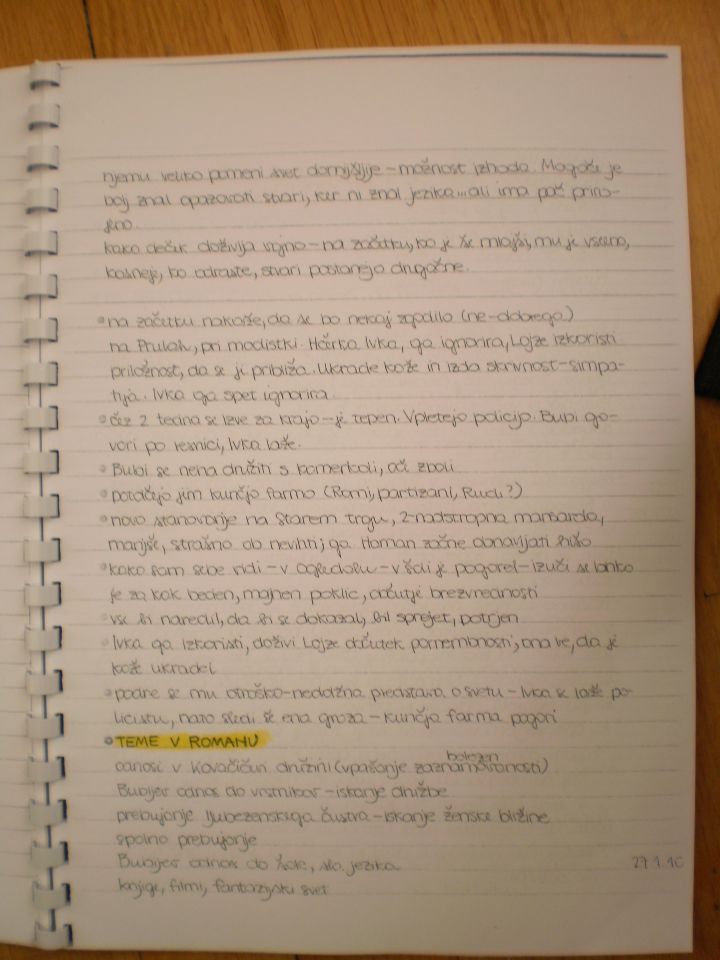 njemu veliko pomeni svet domišljije - možnost izhoda. Mogoče je
bolj znal opazovati stvari, ker ni znal jezika... ali ima pač priro-
jeno.
kako deček doživlja vojno - na začetku, ko je še mlajši, mu je vseeno,
kasneje, ko odraste, stvari postanejo drugačne.
• na začetku nakaže, da se bo nekaj zgodilo (ne-dobrega)
na Prulah, pri modistki. Hčerka Ivka, ga ignorira, Lojze izkoristi
priložnost, da se ji približa. Ukrade kože in izda skrivnost - simpa-
tija. Ivka ga spet ignorira.
• čez 2 tedna se izve za krajo - je tepen. Vpletejo policijo. Bubi go-
vori po resnici, Ivka laže.
• Bubi se neha družiti s komerkoli, ač zboli
• potačejo jim kunčjo farmo (Romi, partizani, Rudi?)
• novo stanovanje na Starem trgu, 2-nadstropna mansarda,
manjše, strašno ob nevihti; ga. Hamman začne obnavljati hišo
• kako sam sebe vidi - v ogledalu - v šoli je pogorel - izuči se lahko
le za kak beden, majhen poklic, občutje brezvrednosti
• vse bi naredil, da bi se dokazal, bil sprejet, potrjen
• Ivka ga izkoristi, doživi Lojze občutek pomembnosti, ona ve, da je
kože ukradel
• podre se mu otroško-nedolžna predstava o svetu - Ivka se laže po-
licistu, nato sledi še ena groza - kunčja farma pogori
• TEME V ROMANU
odnosi v Kovačičevi družini (vprašanje zaznamovanosti) bolezen
Bubijev odnos do vrstnikov - iskanje družbe
prebujanje ljubezenskega čustva - iskanje ženske bližine
spolno prebujanje
Bubijev odnos do šole, slo. jezika
knjige, filmi, fantazijski svet
27.1.10